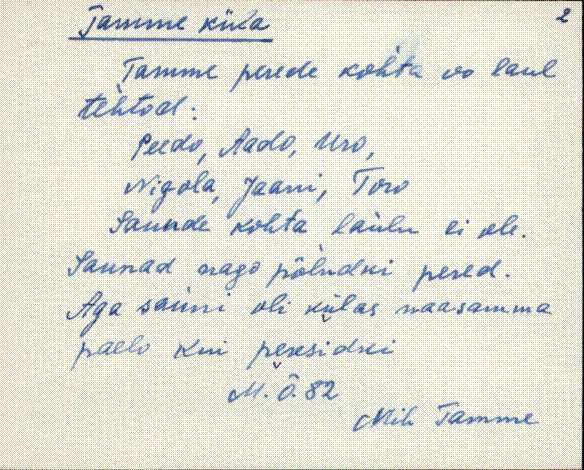 2
Tamme küla
Tamme perede kohta oo laul
tehtod:
Peedo, Aado, Uro,
Nigola, Jaani, Toro
Saunde kohta laulu ei ole.
Saunad nago põludki pered.
Aga sauni oli külas naasamma
paelo kui peresidki
M. Õ. 82
Mih Tamme